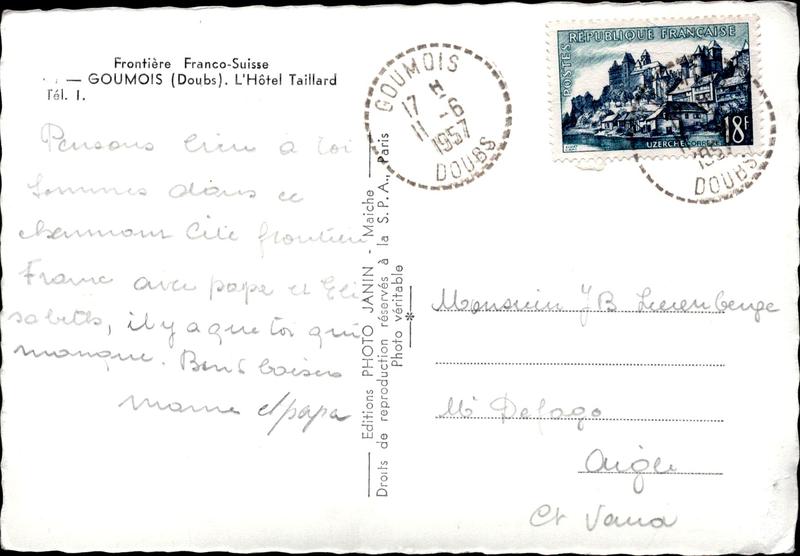 Frontière Franco-Suisse
— GOUMOIS (Doubs). L'Hôtel Taillard
Tél. 1.
Pensons bien à toi
sommes dans ce
charmant cité frontière
France avec papa et Eli
sabeth, il y a que toi qui
manque. Bons baisers
mame et papa
Editions PHOTO JANIN - Maiche
Droits de reproduction réservés à la S. P. A., Paris
Photo véritable
*
GOUMOIS
17 H
11 - 6
1957
DOUBS
POSTES RÉPUBLIQUE FRANÇAISE
UZERCHE CORRÈZE
18F
1957
DOUBS
Monsieur JB
Mr Defago
Aigle
Ct Vaud